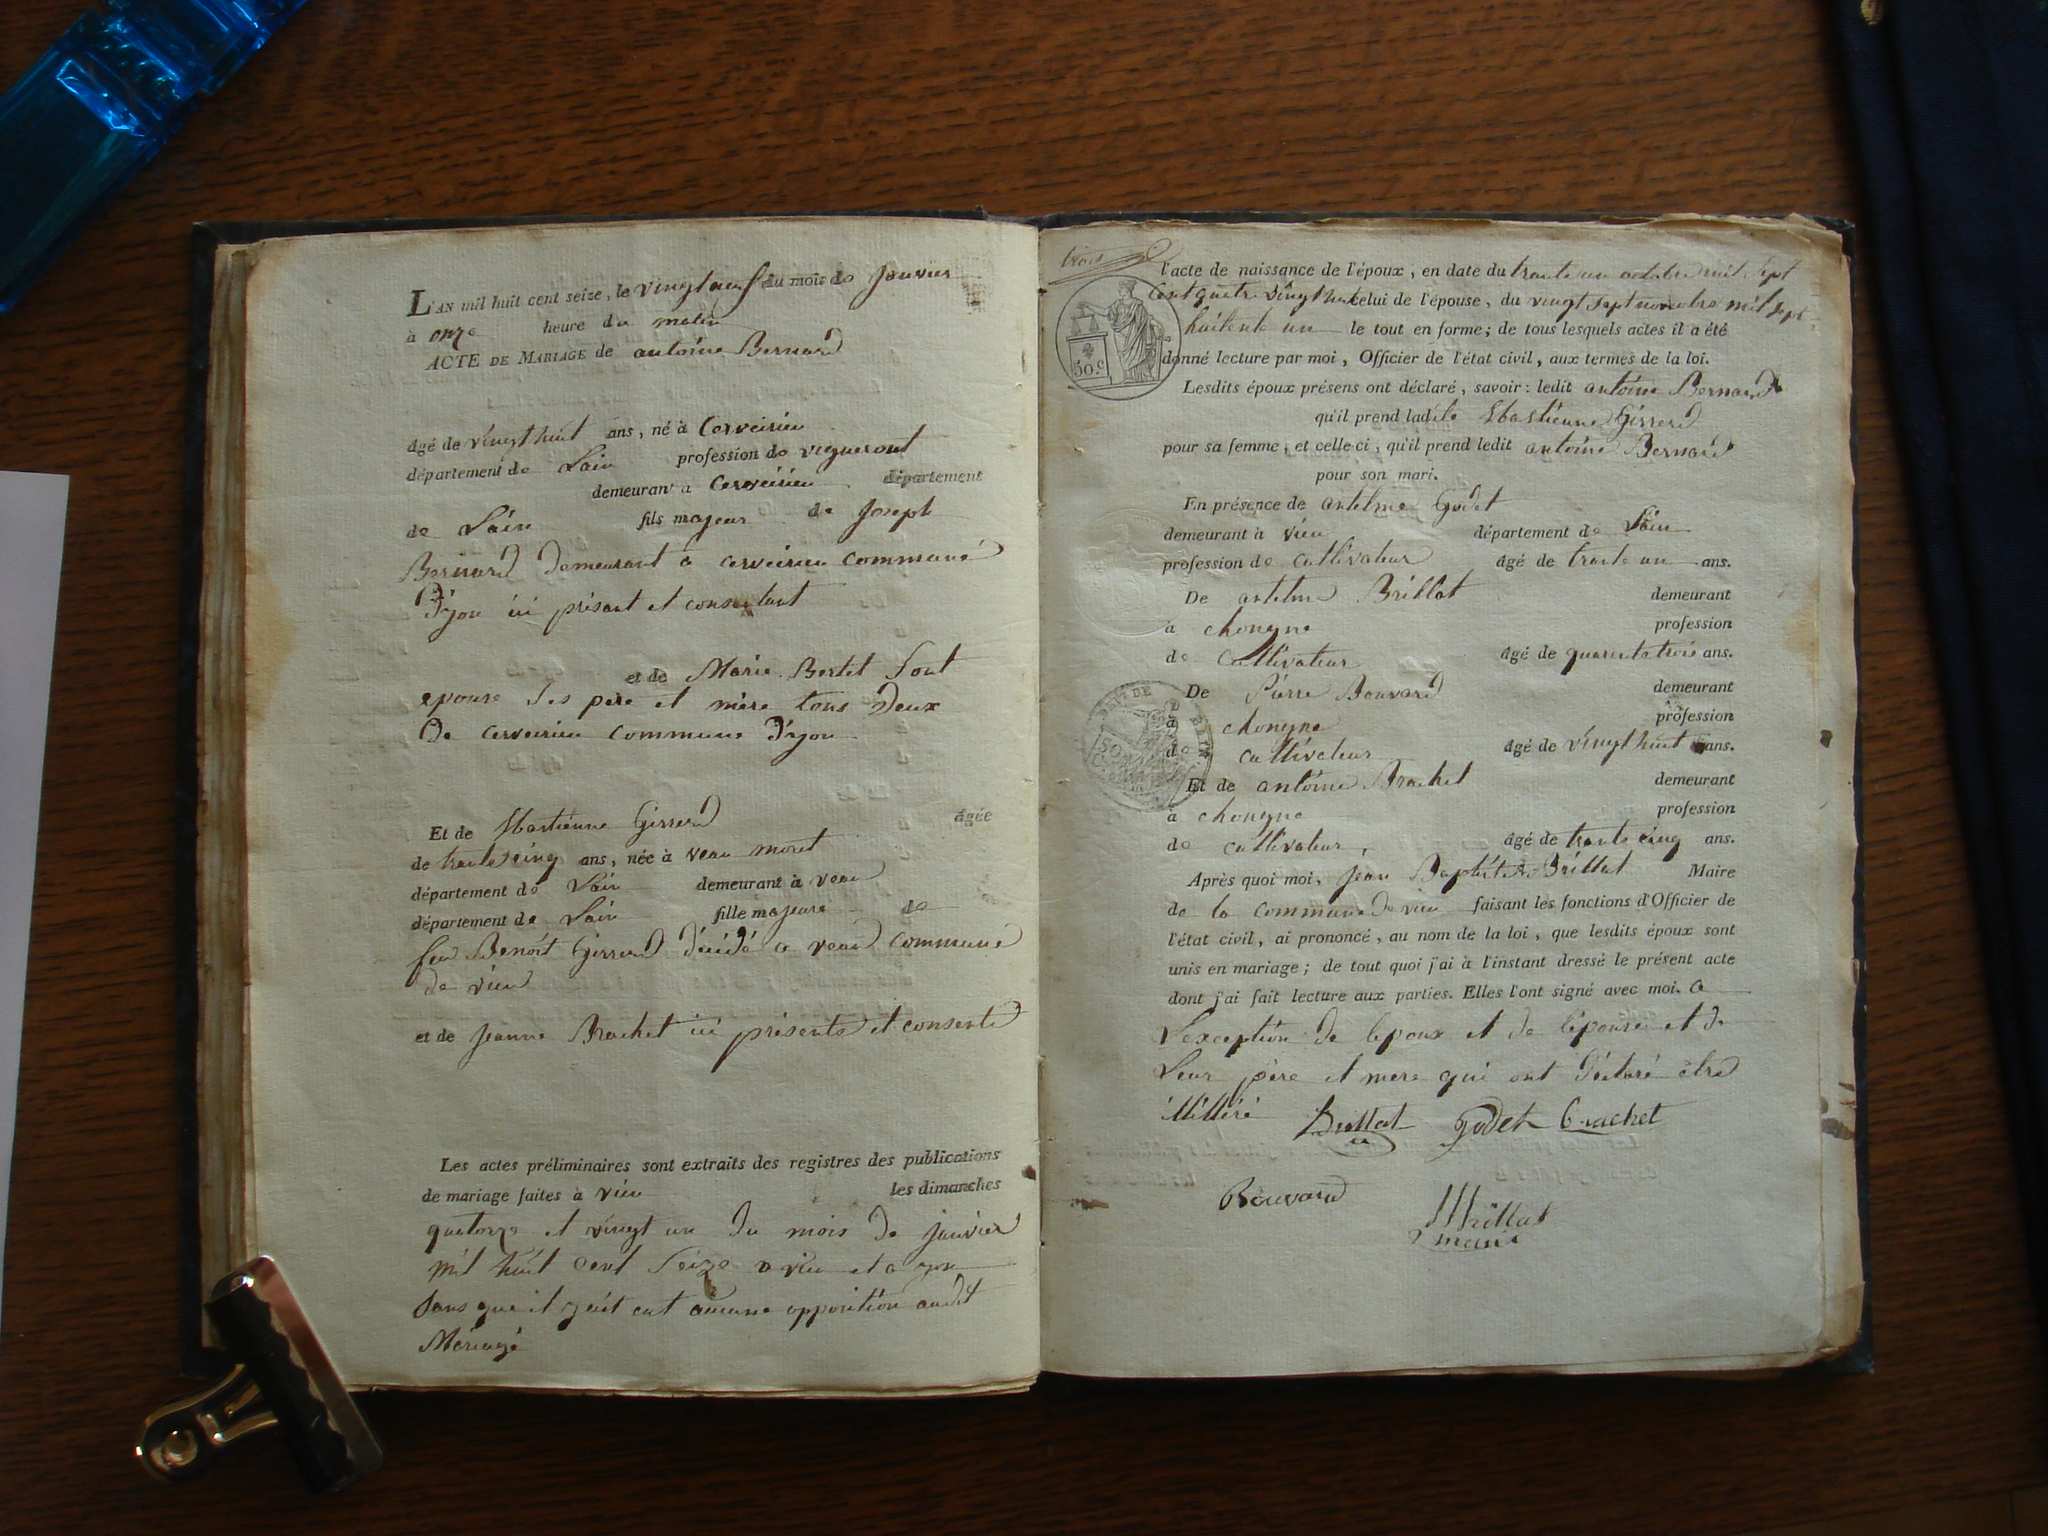 L'AN mil huit cent seize, le vingt neuf du mois de janvier
à onze heure du matin
ACTE DE MARIAGE de antoine Bernard
âgé de vingt huit ans, né à Cerveirieu
département de Lain profession de vigneront
demeurant à Cerveirieu département
de Lain fils majeur de Joseph
Bernard demeurant a cerveirieu commune
D'yon ici présent et consentant
et de Marie Bertet Sont
epouse ses pere et mère tous deux
De cerveirieu commune d'yon
Et de Sbastienne Girrerd âgée
de trante cinq ans, née à veau moret
département de Lain demeurant à veau
département de Lain fille majeure de
feu Benoit Girrerd décidé a veau commune
de vieu
et de Jeanne Brachet ici présente et consente
Les actes préliminaires sont extraits des registres des publications
de mariage faites à vieu les dimanches
quatorze et vingt un du mois de janvier
mil huit cent seize a vieu et a yon
sans que il y ait eut aucune opposition audit
Mariage
trois
l'acte de naissance de l'époux, en date du trante un octobre mil sept
cent quatre vingt huit celui de l'épouse, du vingt sept novembre mil sept
huitente un le tout en forme; de tous lesquels actes il a été
donné lecture par moi, Officier de l'état civil, aux termes de la loi.
50.c
Lesdits époux présens ont déclaré, savoir: ledit antoine Bernard
qu'il prend ladite Sbastienne Girrerd
pour sa femme, et celle-ci, qu'il prend ledit antoine Bernard
pour son mari.
En présence de antelme Godet
demeurant à vieu département de Lain
profession de cultivateur âgé de trante un ans.
De antelme Brillat demeurant
à chongne profession
de cultivateur âgé de quarente trois ans.
De Pierre Bouvard demeurant
à chongne profession
de cultivateur âgé de vingt huit ans.
Et de antoine Brachet demeurant
à chongne profession
de cultivateur, âgé de trante cinq ans.
Après quoi moi, jean Baptiste Brillat Maire
de la commune de vieu faisant les fonctions d'Officier de
l'état civil, ai prononcé, au nom de la loi, que lesdits époux sont
unis en mariage; de tout quoi j'ai à l'instant dressé le présent acte
dont j'ai fait lecture aux parties. Elles l'ont signé avec moi. a
L'exception de lepoux et de lépouse et de
Leur père et mere qui ont déclaré être
illitéré Brillat Godet Brachet
Bouvard Brillat
maire